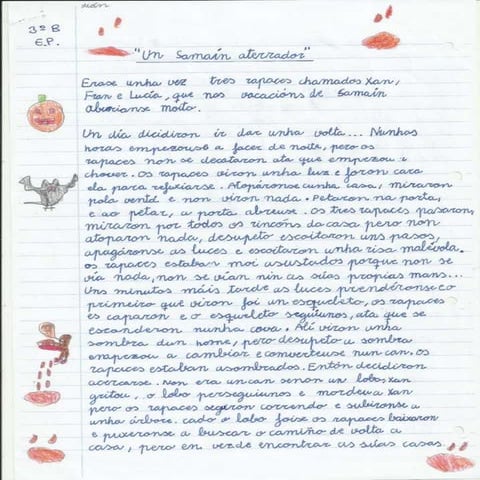 3º B
E.P.
"Un Samaín aterrador"
Erase unha vez tres rapaces chamados Xan,
Fran e Lucía, que nas vacacións de Samaín
aburianse moito.
Un día dicidiron ir dar unha volta... Nunhas
horas empezouse a facer de noite, pero os
rapaces non se decataron ata que empezou a
chover. Os rapaces viron unha luz e foron cara
ela para refuxiarse. Atopáronse cunha casa, miraron
pola ventá e non viron nada. Petaron na porta,
e ao petar, a porta abreuse. Os tres rapaces pasaron,
miraron por todos os rincóns da casa pero non
atoparon nada, desupeto escoitaron uns pasos,
apagáronse as luces e escoitaron unha risa malévola.
os rapaces estaban moi asustados porque non se
vía nada, non se vían nin as súas propias mans...
Uns minutos máis tarde as luces prendéronse e o
primeiro que viron foi un esqueleto, os rapaces
es caparon e o esqueleto seguíunos, ata que se
esconderon nunha cova. Alí viron unha
sombra dun home, pero desupeto a sombra
empezou a cambiar e converteuse nun can. Os
rapaces estaban asombrados. Entón decidiron
acercarse. Non era un can senon un lobo, Xan
gritou, o lobo perseguiunos e mordeu a Xan
pero os rapaces seguron correndo e subironse a
unha árbore. cado o lobo foise os rapaces baixaron
e puxeronse a buscar o camiño de volta a
casa, pero en vez de encontrar as súas casas